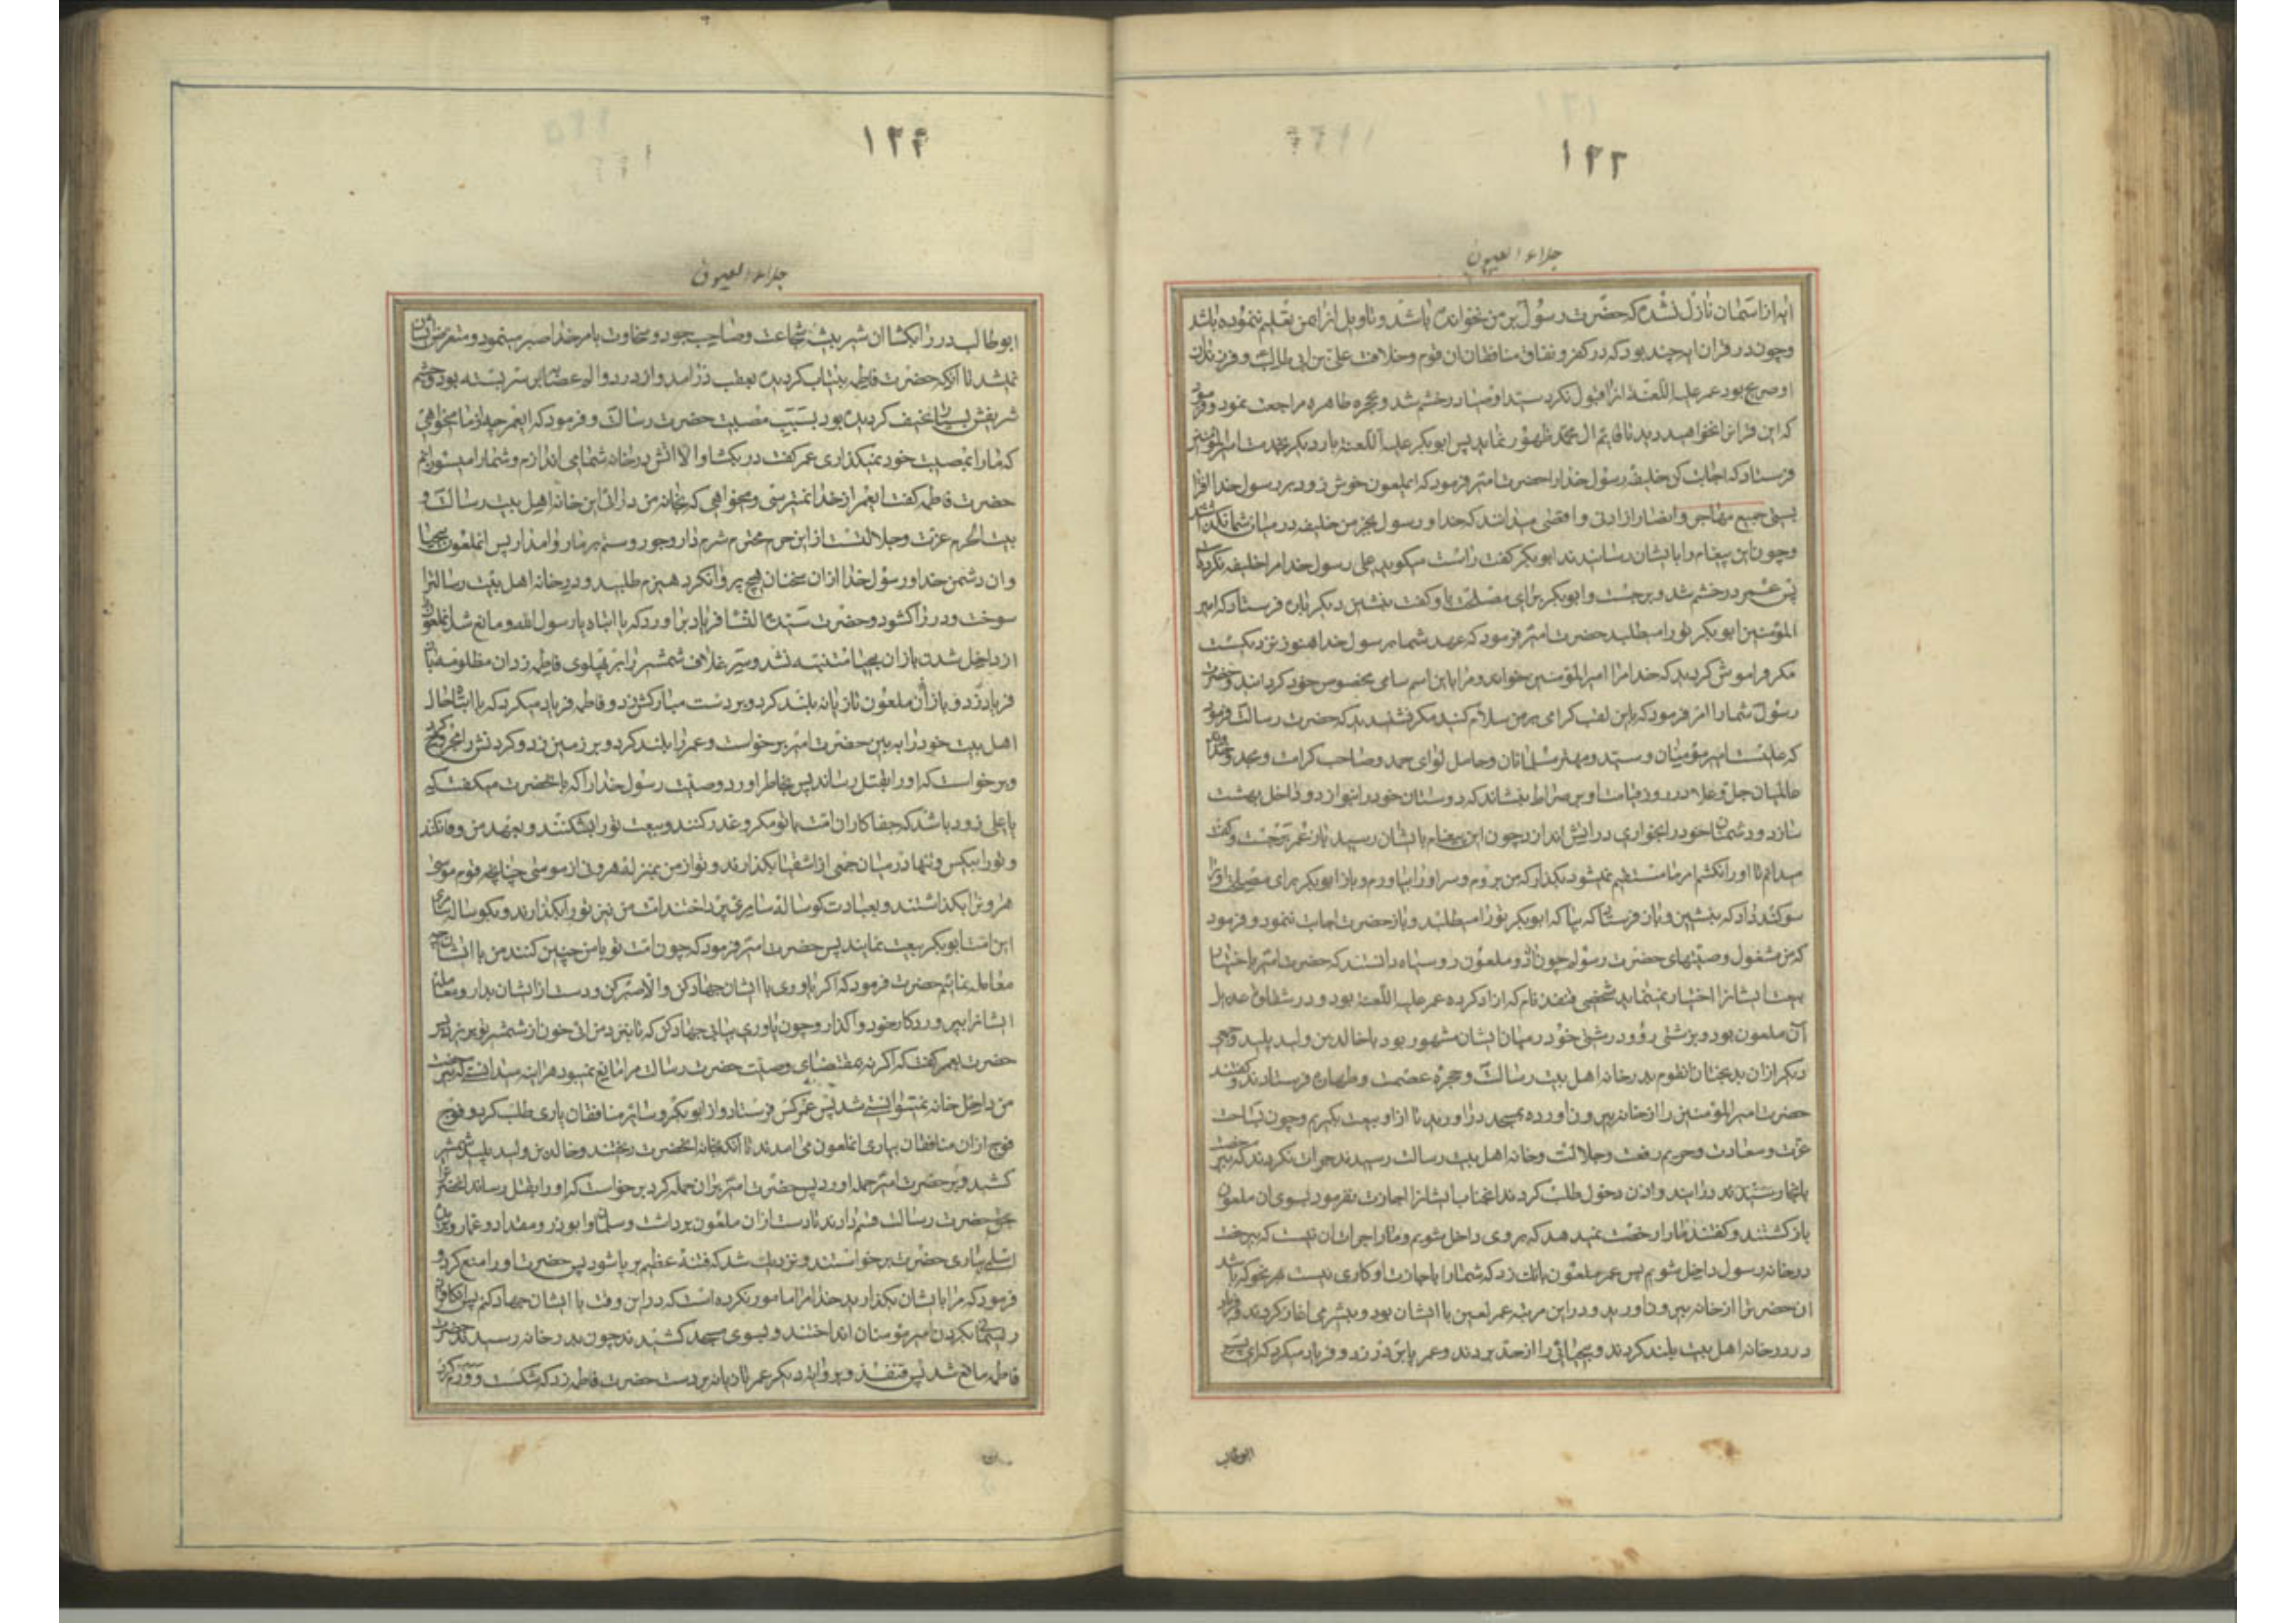 ۱۲۳
جلاء العیون
ایه از اسمان نازل نشده که حضرت رسول بر من نخوانده باشد و تاویل انرا بمن تعلیم ننموده باشد
و چون در قران ایه چند بود که در کفر و نفاق منافقان ان قوم و خلافت علی بن ابی طالب و فرزندان
او صریح بود عمر علیه اللعنة انرا قبول نکرد سید اوصیا در خشم شد و بحجره طاهره مراجعت نمود و فرمود
که این قران را نخواهید دید تا قایم ال محمد ظهور نماید پس ابوبکر علیه اللعنة بار دیگر بخدمت امیرالمؤمنین
فرستاد که اجابت کن خلیفه رسول خدا را حضرت امیر فرمود که ایملعون خوش زود بر رسول خدا افترا
بستی جمیع مهاجر و انصار از ادنی و اقصی میدانند که خدا و رسول بجز من خلیفه در میان شما نگذاشتند
و چون این پیغام را بایشان رسانیدند ابوبکر گفت راست میکوید علی رسول خدا مرا خلیفه نکرده
پس عمر در خشم شد و برجست و ابوبکر برای مصلحت باو گفت بنشین دیگر باره فرستاد که امیر
المؤمنین ابوبکر تو را میطلبد حضرت امیر فرمود که عهد شما بر رسول خدا هنوز نزدیکست
مکر فراموش کردید که خدا مرا امیرالمؤمنین خوانده و مرا باین اسم سامی مخصوص خود کردانید و حضرت
رسول شما را امر فرمود که باین لقب کرامی بر من سلام کنید مکر نشنیدید که حضرت رسالت فرمود
که علیست امیر مؤمنان و سید و مهتر مسلمانان و حامل لوای حمد و صاحب کرامت و مجد و خداوند
عالمیان جل و علا در روز قیامت او بر صراط بنشاند که دوستان خود را بنوازد و داخل بهشت
سازد و دشمنان خود را بخواری در اتش اندازد چون این پیغام بایشان رسید باز عمر برجست و گفت
میدانم تا او را نکشم امر ما مستقیم نمیشود بگذار که من بروم و سر او را بیاورم و باز ابوبکر برای مصلحت او را
سوکند داد که بنشین و بان فرستاد که بیا که ابوبکر تو را میطلبد و باز حضرت اجابت ننمود و فرمود
که من مشغول وصیتهای حضرت رسولم چون آن دو ملعون رو سیاه دانستند که حضرت امیر باختیار
بیعت ایشانرا اختیار نمینماید شخصی قنفذ نام که ازاد کرده عمر علیه اللعنة بود و در شقاوت عدیل
آن ملعون بود و بزشتی رو و درشتی خود در میان ایشان مشهور بود با خالد بن ولید پلید و جمعی
دیگر ازان بدبختان انقوم بدر خانه اهل بیت رسالت و حجره عصمت و طهارت فرستادند و گفتند
حضرت امیرالمؤمنین را از خانه بیرون اورده بمسجد دراورید تا از او بیعت بکیریم و چون بساحت
عزت و سعادت و حریم رفعت و جلالت و خانه اهل بیت رسالت رسیدند جرات نکردند که بیرخصت
بانجا رسیدند درایند و اذن دخول طلب کردند انجناب ایشانرا اجازت نفرمود بسوی ان ملعون
بازکشتند و گفتند ما را رخصت نمیدهد که بروی داخل شویم و ما را جرات ان نیست که بیرخصت
در خانه رسول داخل شویم پس عمر ملعون بانک زد که شما را باجازت او کاری نیست هر نحو که باشد
ان حضرترا از خانه بیرون اورید و دراین مرتبه عمر لعین با ایشان بود و بیشرمی اغاز کردند و فریاد
در در خانه اهل بیت بلند کردند و بیحیائی را از حد بردند و عمر پا بر در زد و فریاد میکرد که ای پسر
ابوطالب
۱۲۴
جلاء العیون
ابوطالب در را بکشا ان شیر بیشه شجاعت و صاحب جود و سخاوت بامر خدا صبر مینمود و متعرض ایشان
نمیشد تا انکه حضرت فاطمه بیتاب کردیده بعقب در امد و از درد و الم عصابه بر سر بسته بود و جسم
شریفش بسیار نحیف کردیده بود بسبب مصیبت حضرت رسالت و فرمود که ایعمر چه از ما میخواهی
که ما را بمصیبت خود نمیگذاری عمر گفت در بکشا و الا اتش در خانه شما می اندازم و شما را میسوزانم
حضرت فاطمه گفت ایعمر از خدا نمیترسی و میخواهی که بخانه من درائی این خانه اهل بیت رسالت و
بیت الحرم عزت و جلالتست از این حرم محترم شرم دار و جور و ستم بر ما روا مدار پس انملعون بیحیا
و ان دشمن خدا و رسول خدا ازان سخنان هیچ پروا نکرد هیزم طلبید و در خانه اهل بیت رسالترا
سوخت و در را کشود و حضرت سیدة النسا فریاد براورد که یا ابتاه یا رسول الله و مانع شد انملعون
از داخل شدن باز ان بیحیا متنبه نشد و سر غلاف شمشیر را بر پهلوی فاطمه زد ان مظلومه باز
فریاد زد و باز آن ملعون تازیانه بلند کرد و بر دست مبارکش زد و فاطمه فریاد میکرد که یا ابتا حال
اهل بیت خود را ببین حضرت امیر برخواست و عمر را بلند کرد و بر زمین زد و کردنش را
و برخواست که او را بقتل رساند پس بخاطر اورد وصیت رسول خدا را که بانحضرت میکفت که
یا علی زود باشد که جفاکاران امت با تو مکر و غدر کنند و بیعت تو را بشکنند و بعهد من وفا نکنند
و تو را بیکس و تنها در میان جمعی از اشقیا بگذارند و تو از من بمنزله هرونی از موسی چنانچه قوم موسی
هرون را بگذاشتند و بعبادت کوساله سامری پرداختند امت من نیز تو را بگذارند و بکوساله سامری
این امت ابوبکر بیعت نمایند پس حضرت امیر فرمود که چون امت تو با من چنین کنند من با ایشان چه
معامله نمائیم حضرت فرمود که اکر یاوری یا ایشان جهاد کن و الا صبر کن و دست از ایشان بدار و معامله
ایشانرا بپروردکار خود واگذار و چون یاوری بیابی جهاد کن که تا بنزد من ائی خون از شمشیر تو بریزد پس
حضرت بعمر گفت که اکر نه بمقتضای وصیت حضرت رسالت مرا مانع نمیبود هراینه میدانستی که بیرخصت
من داخل خانه نمیتوانستی شد پس عمر کس فرستاد و از ابوبکر و سائر منافقان یاری طلب کرد و فوج
فوج ازان منافقان بیاری انملعون می امدند تا انکه بخانه انحضرت ریختند و خالد بن ولید پلید شمشیر
کشید و بر حضرت امیر حمله اورد پس حضرت امیر بران حمله کرد برخواست که او را بقتل رساند انحضرترا
بحق حضرت رسالت قسم دادند تا دست ازان ملعون برداشت و سلمان و ابوذر و مقداد و عمار و بریده
اسلمی بیاری حضرت برخواستند و نزدیک شد که فتنه عظیم برپا شود پس حضرت او را منع کرد و
فرمود که مرا بایشان بگذارید خدا مرا مامور نکرده است که دراین وقت با ایشان جهاد کنم پس انکافران
ریسمانی بکردن امیر مؤمنان انداختند و بسوی مسجد کشیدند چون بدر خانه رسیدند حضرت
فاطمه مانع شد پس قنفذ و بروایة دیگر عمر تازیانه بر دست حضرت فاطمه زد که شکست و ورم کرد